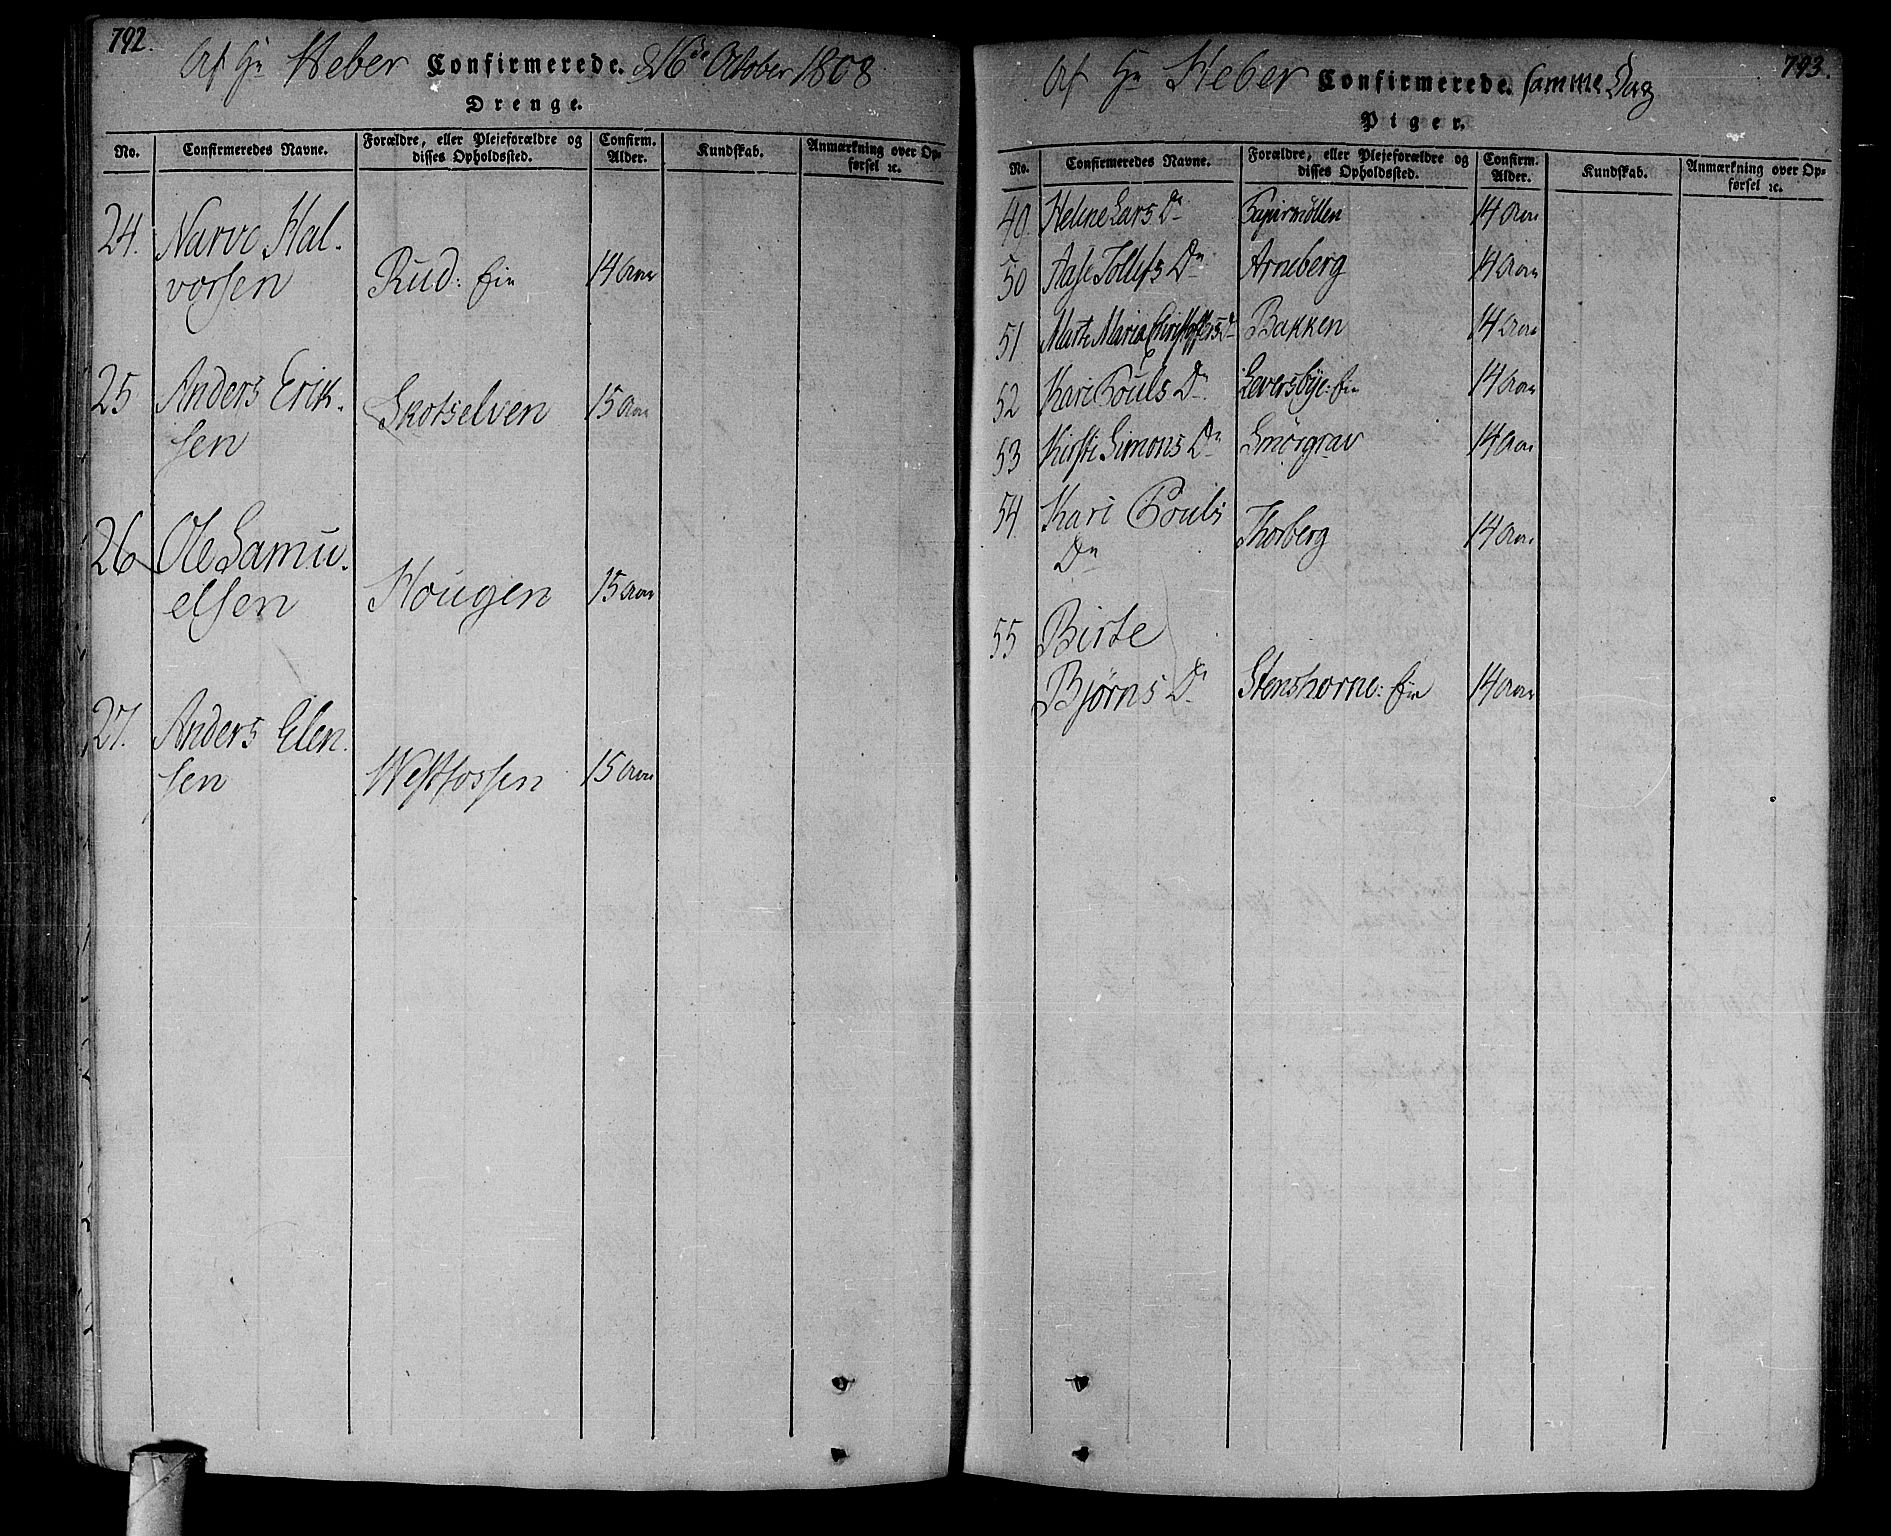 792.
Af Hr Heber Confirmerede. d 16de October 1808
Drenge.
No. Confirmeredes Navne. Forældre, eller Plejeforældre og disses Opholdssted. Confirm. Alder. Kundskab. Anmærkning over Opførsel ꝛc.
24. Narve Hal-
vorsen Rud: Eie 14 Aar
25 Anders Erik-
sen Skotselven 15 Aar
26 Ole Samu-
elsen Hougen 15 Aar
27. Anders Elen-
sen Westfossen 15 Aar
793.
Af Hr Heber Confirmerede. samme Dag
Piger.
No. Confirmeredes Navne. Forældre, eller Plejeforældre og disses Opholdssted. Confirm. Alder. Kundskab. Anmærkning over Opførsel ꝛc.
49 Helene Lars Dr Papirmøllen 14 Aar
50 Aase Tollefs Dr Arneberg 14 Aar
51 Marte Maria Christoffers Dr Bakken 14 Aar
52 Kari Pouls Dr Leversbye: Eie 14 Aar
53 Kirsti Simons Dr Smörgrav 14 Aar
54 Kari Pouls
Dr Thorberg 14 Aar
55 Birte
Bjørns Dr Stenshorne: Eie 14 Aar